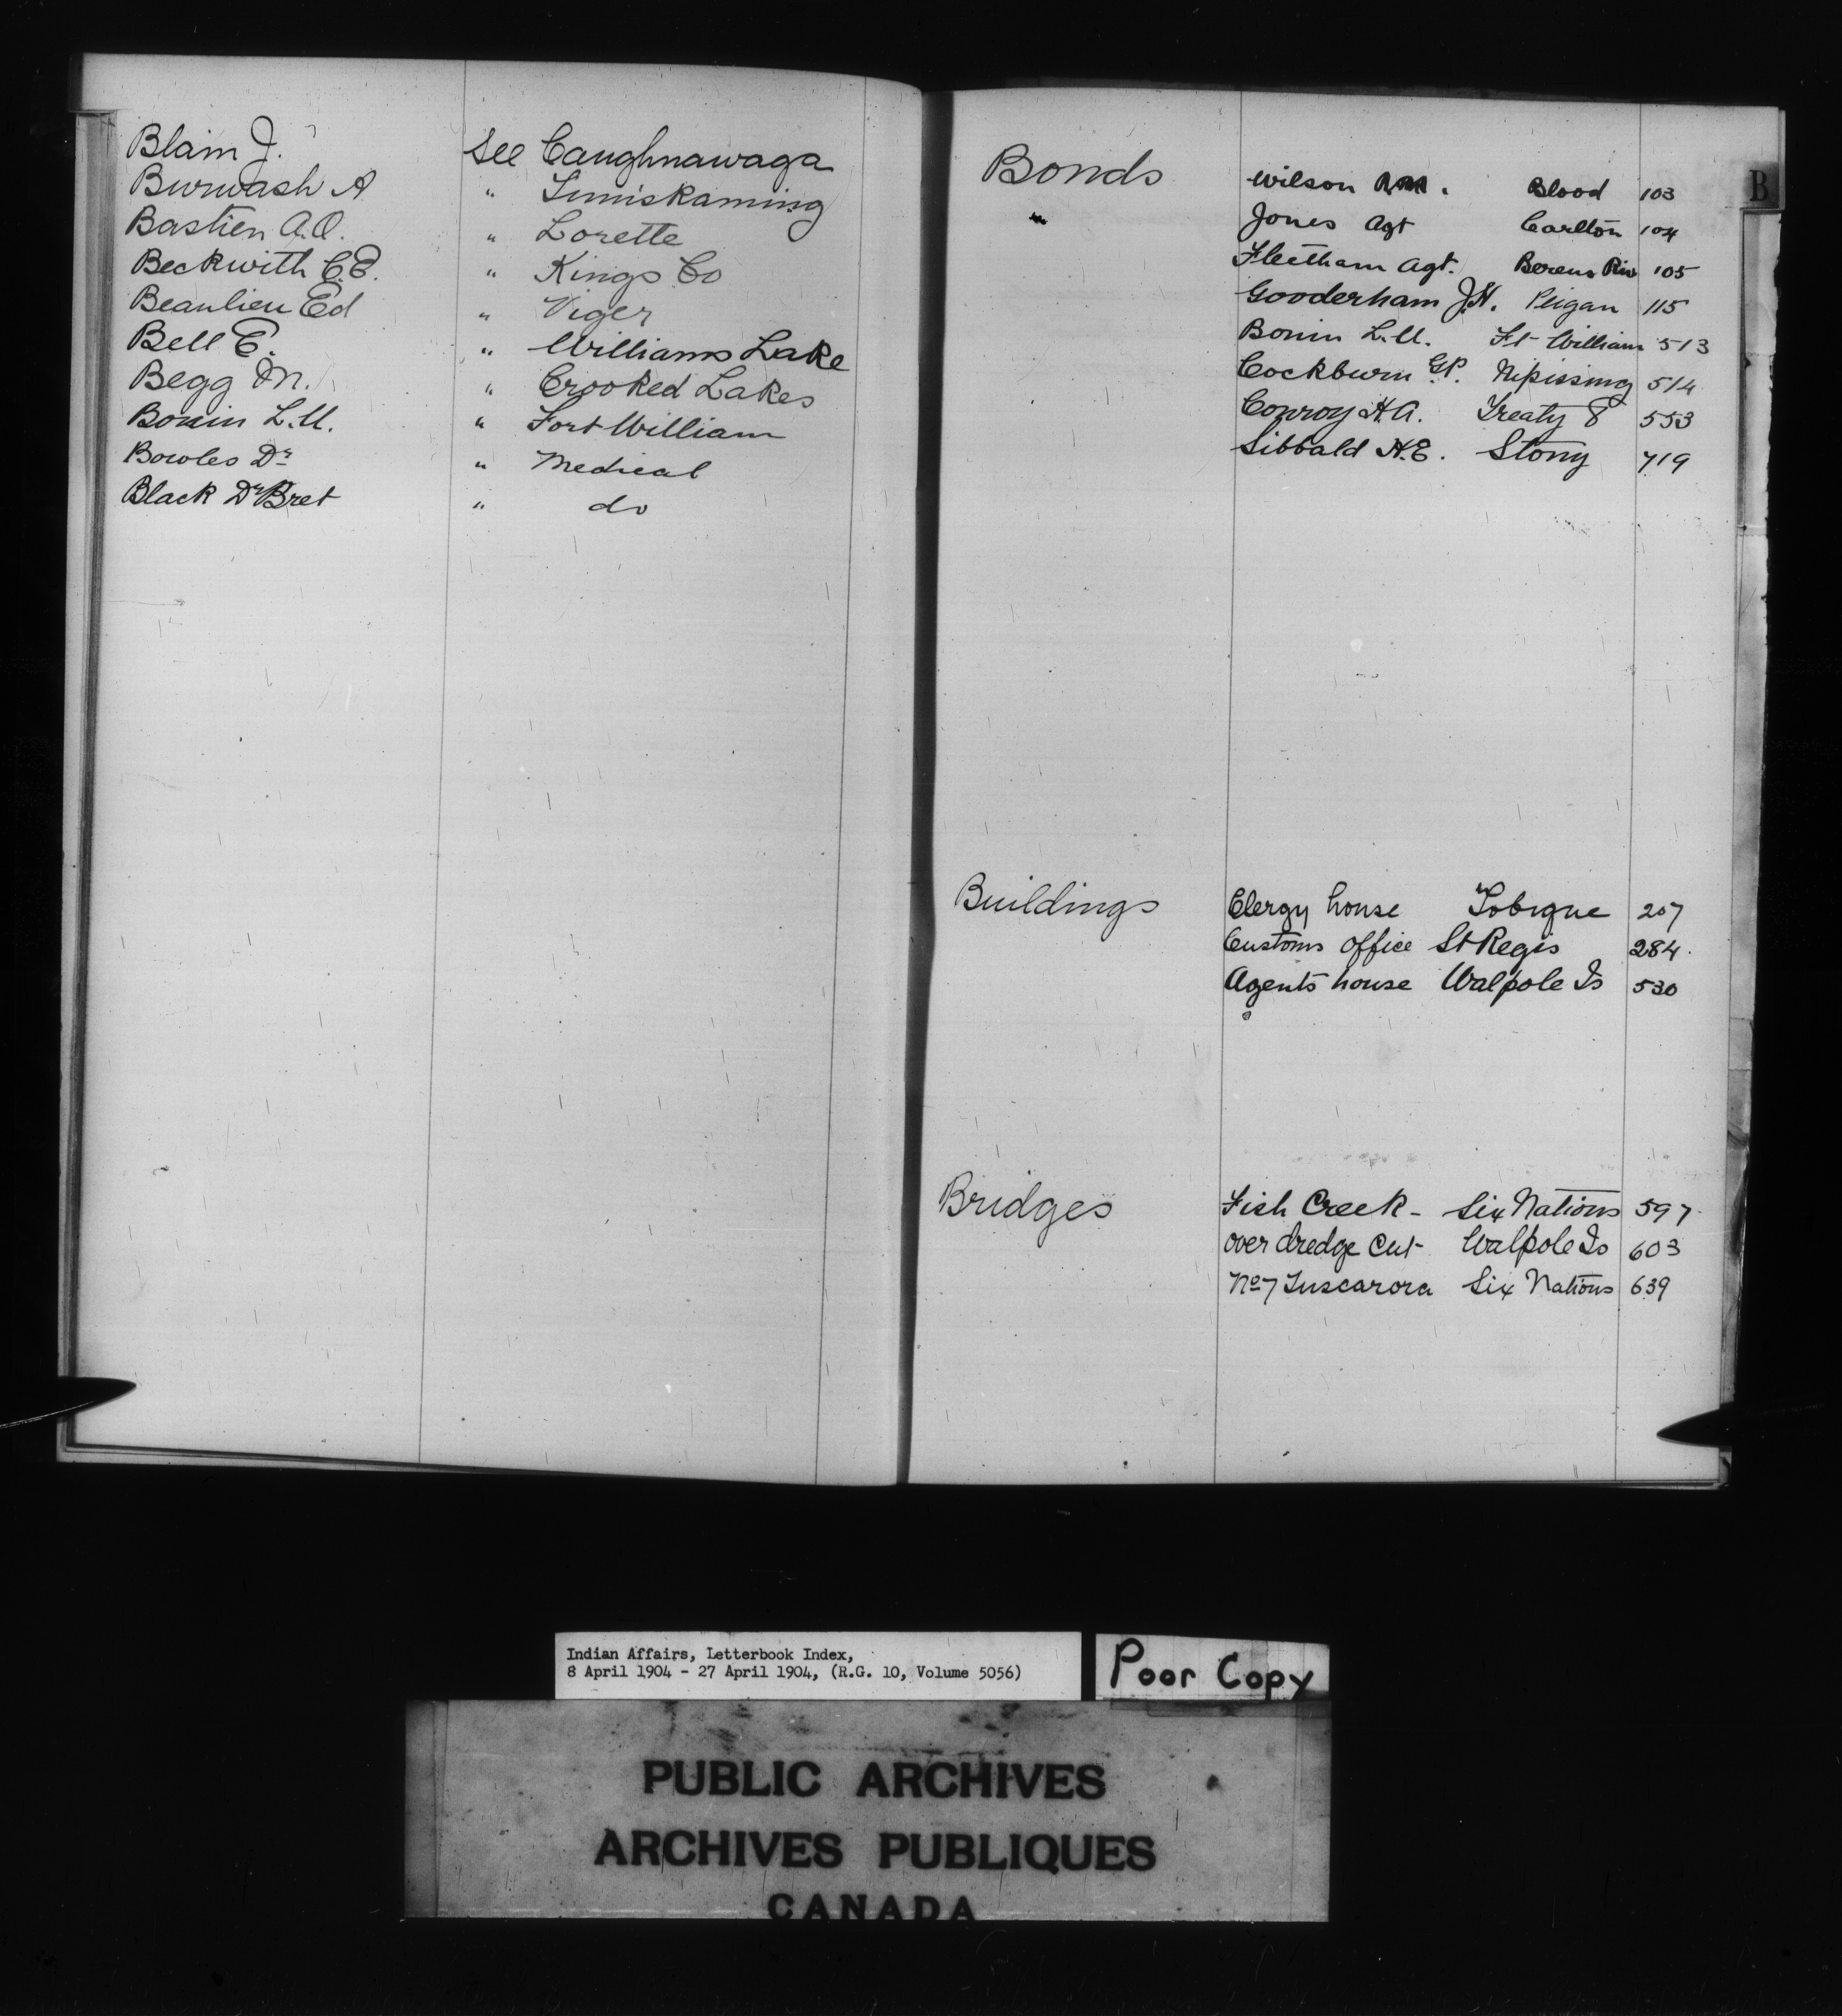 Blain J. See Caughnawaga
Burwash A " Timiskaming
Bastien A.O. " Lorette
Beckwith C.E. " Kings Co
Beaulieu Ed " Viger
Bell E. " Williams Lake
Begg M. " Crooked Lakes
Bonin L.U. " Fort William
Bowles Dr " Medical
Black Dr Bret " do
B
Bonds Wilson Blood 103
Jones Agt Carlton 104
Fleetham Agt. Berens Riv 105
Gooderham J.H. Peigan 115
Bonin L.U. Ft William 513
Cockburn G.P. Nipissing 514
Conroy H.A. Treaty 8 553
Sibbald H.E. Stony 719
Buildings Clergy house Tobique 207
Customs office St Regis 284
Agents house Walpole Is 530
Bridges Fish Creek - Six Nations 597
over dredge cut Walpole Is 603
No 7 Tuscarora Six Nations 639
Indian Affairs, Letterbook Index,
8 April 1904 - 27 April 1904, (R.G. 10, Volume 5056)
Poor Copy
PUBLIC ARCHIVES
ARCHIVES PUBLIQUES
CANADA